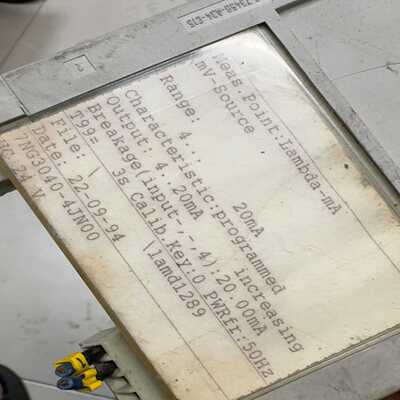 73450-A34-E15
Meas.Point:Lambda-mA
mV-Source
Range: 4.. 20mA
Characteristic:programmed
Output: 4. 20mA increasing
Breakage(Input-,-,4):20.00mA
T99= 3s Calib.Key:0 PWRfr:50Hz
File: \ \lamd1289
Date: 22-09-94
7NG3040-4JN00
24 V